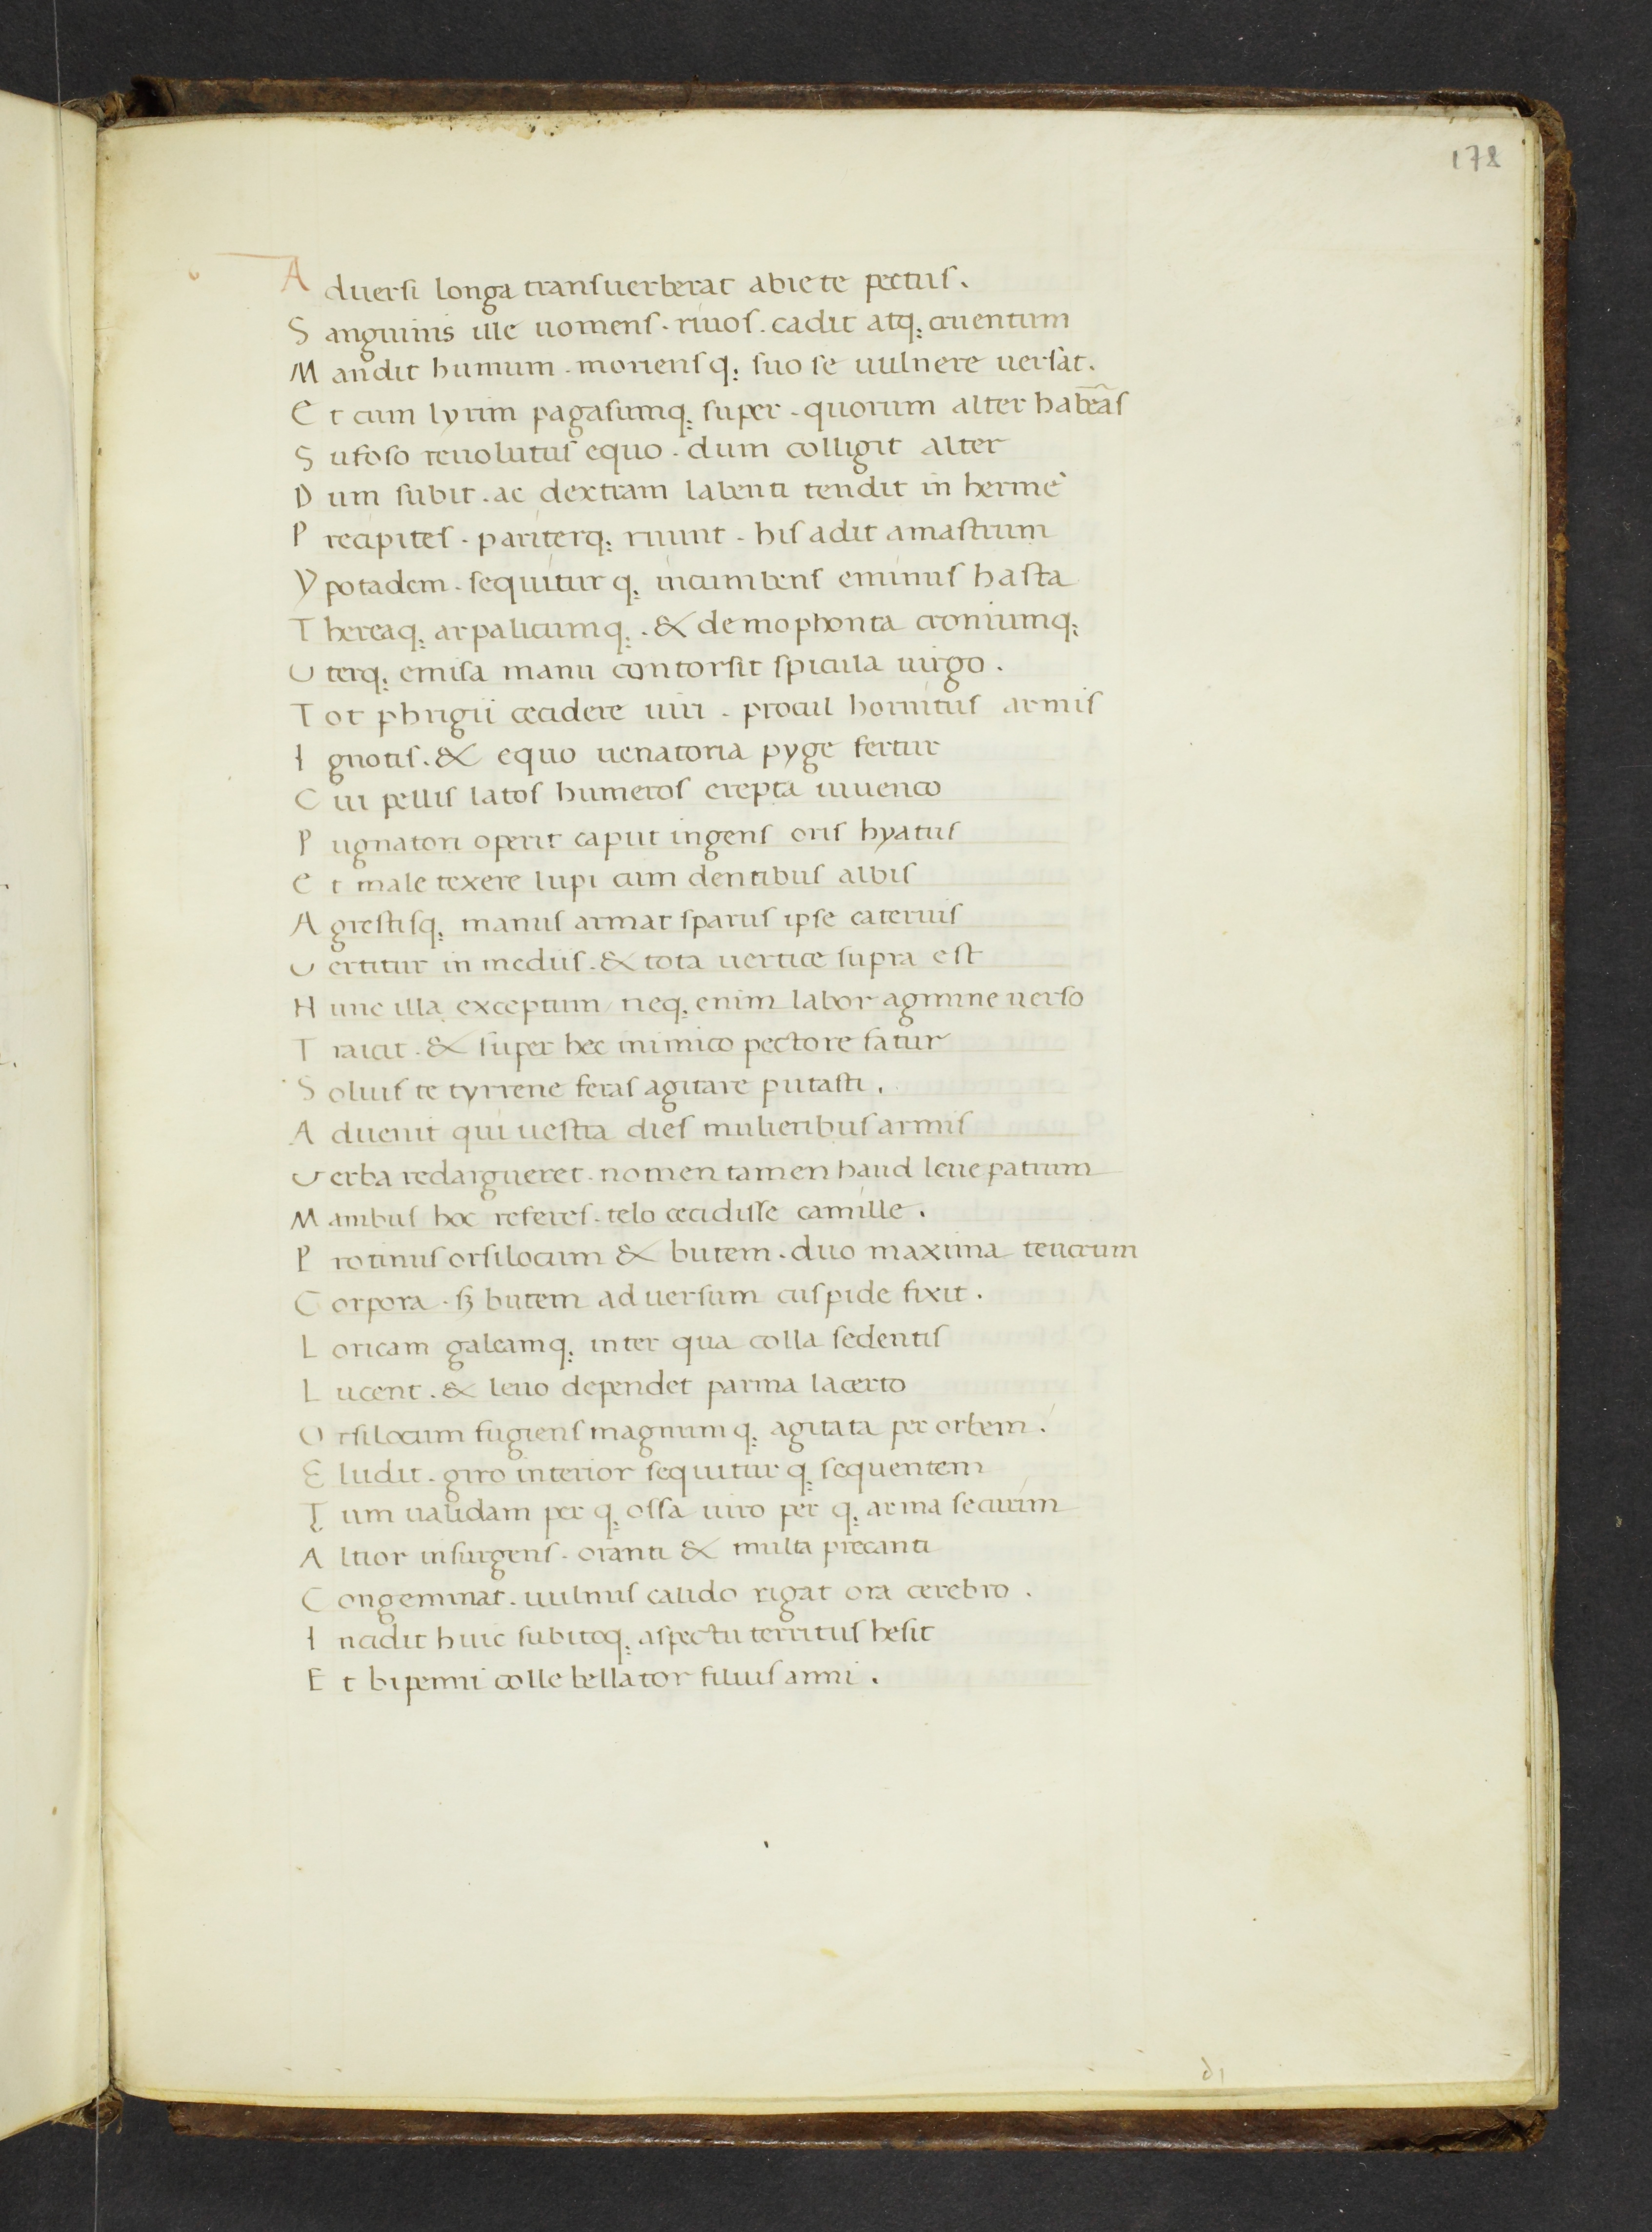 178
A duersi longa transuerberat abiete pectus.
S anguinis ille uomens. riuos. cadit atq; cruentum
M andit humum. moriensq; suo se uulnere uersat.
E t cum lyrim pagasumq; super. quorum alter habeās
S ufoso reuolutus equo. dum colligit alter
D um subit. ac dextram labenti tendit in hermē
P recipites. pariterq; ruunt. his adit amastrum
Y potadem. sequitur q; incumbens eminus hasta
T hereaq; arpalicumq;. & demophonta croniumq;
U terq; emisa manu contorsit spicula uirgo.
T ot phrigii cecidere uiri. procul hornitus armis
I gnotis. & equo uenatoria pyge fertur
C ui pellis latos humeros erepta iuuenco
P ugnatori operit caput ingens oris hyatus
E t male texere lupi cum dentibus albis
A grestisq; manus armat sparus ipse cateruis
U ertitur in mediis. & tota uertice supra est
H unc illa exceptum neq; enim labor agmine uerso
T raicit. & super hec inimico pectore fatur
S oluis te tyrrene feras agitare putasti.
A duenit qui uestra dies mulieribus armis
U erba redargueret. nomen tamen haud leue patrum
M anibus hoc referes. telo cecidisse camille.
P rotinus orsilocum & butem. duo maxima teucrum
C orpora. sꝫ butem aduersum cuspide fixit.
L oricam galeamq; inter qua colla sedentis
L ucent. & leuo dependet parma lacerto
O rsilocum fugiens magnumq; agitata per orbem.
E ludit. giro interior sequitur q; sequentem
T um ualidam per q; ossa uiro per q; arma securim
A ltior insurgens. oranti & multa precanti
C ongeminat. uulnus calido rigat ora cerebro.
I ncidit huic subitoq; aspectu territus hesit
E t bipenni colle bellator filius anni.